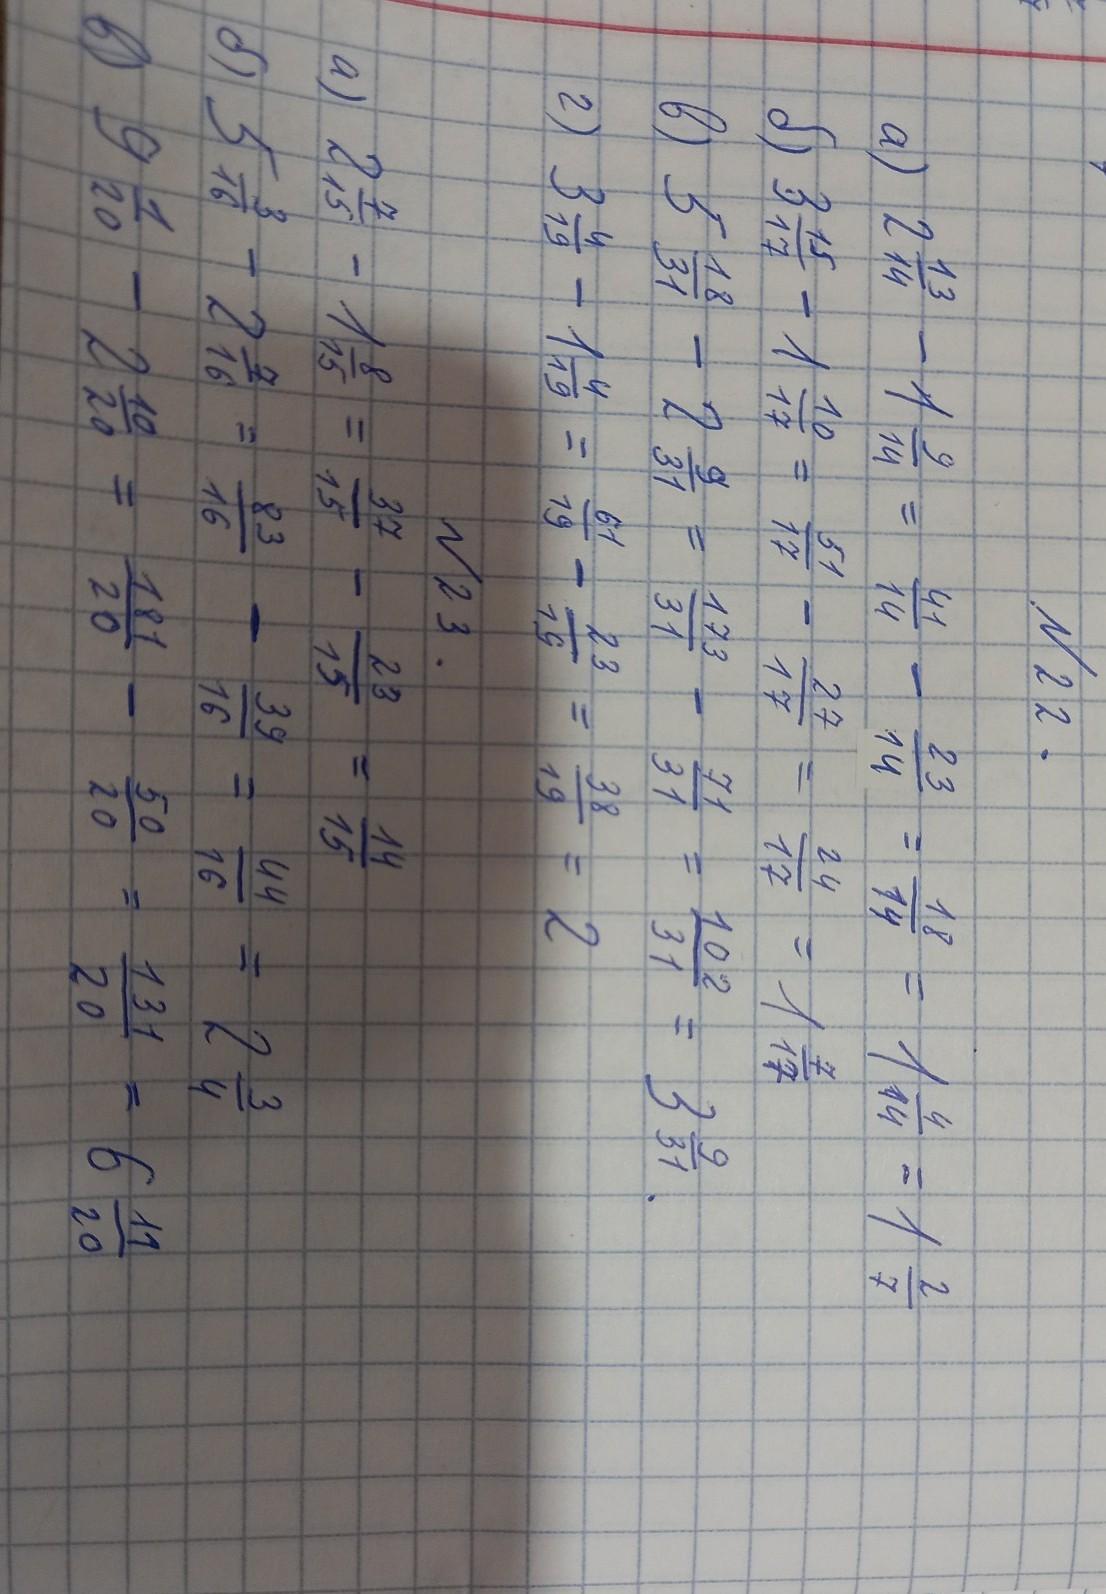 N 22.
а) 2 13/14 - 1 9/14 = 41/14 - 23/14 = 18/14 = 1 4/14 = 1 2/7
б) 3 15/17 - 1 10/17 = 51/17 - 27/17 = 24/17 = 1 7/17
в) 5 18/31 - 2 9/31 = 173/31 - 71/31 = 102/31 = 3 9/31.
г) 3 4/19 - 1 4/19 = 61/19 - 23/19 = 38/19 = 2
N 23.
а) 2 7/15 - 1 8/15 = 37/15 - 23/15 = 14/15
б) 5 3/16 - 2 7/16 = 83/16 - 39/16 = 44/16 = 2 3/4
в) 9 1/20 - 2 10/20 = 181/20 - 50/20 = 131/20 = 6 11/20